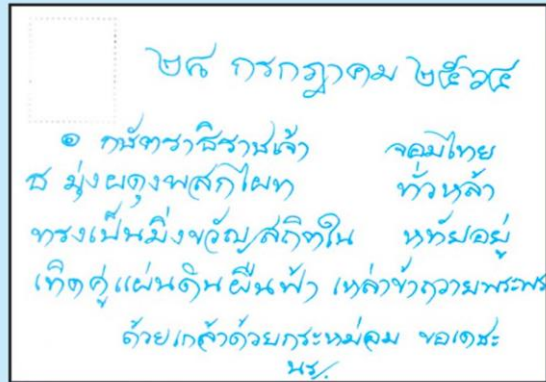 ๒๘ กรกฎาคม ๒๕๖๔
๏ กษัตราธิราชเจ้า จอมไทย
ธ มุ่งผดุงพสกไผท ทั่วหล้า
ทรงเป็นมิ่งขวัญสถิตใน หทัยอยู่
เทิดคู่แผ่นดินผืนฟ้า เหล่าข้าถวายพระพร
ด้วยเกล้าด้วยกระหม่อม ขอเดชะ